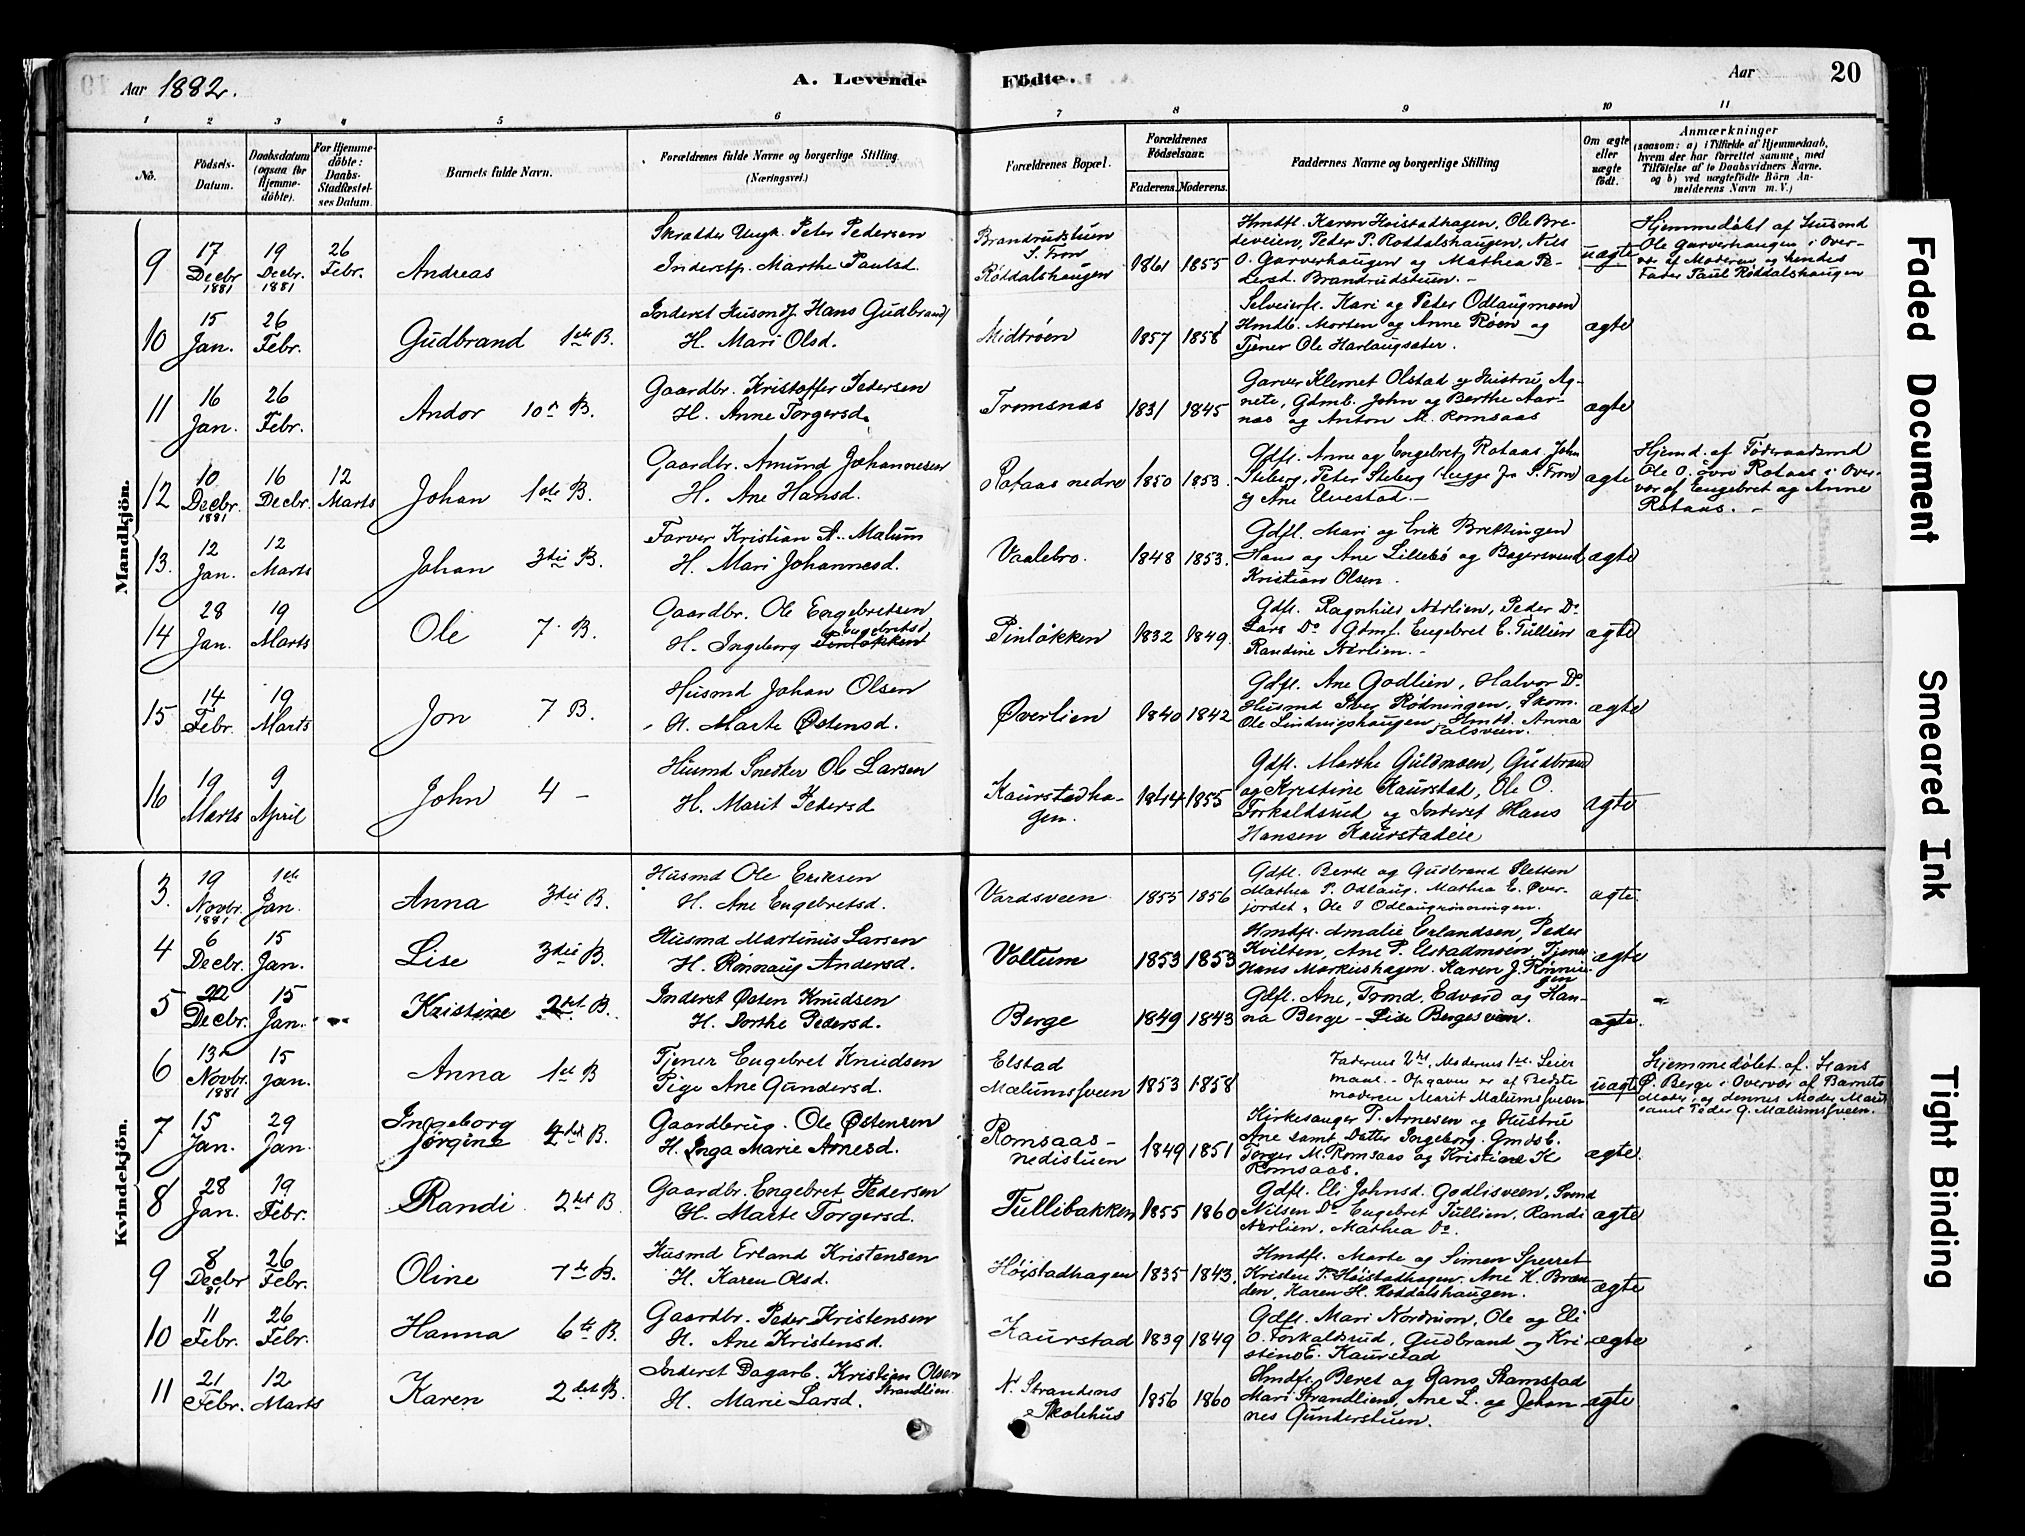 Aar 1882.
A. Levende
Fødte.
Aar
20
1 2 3 4 5 6 7 8 9 10 11
No.
Fødsels-
Datum.
Daabsdatum
(ogsaa for
Hjemme-
døbte).
For Hjemme-
døbte:
Daabs-
Stadfæstel-
ses Datum.
Barnets fulde Navn.
Forældrenes fulde Navne og borgerlige Stilling.
(Næringsvei.)
Forældrenes Bopæl.
Forældrenes
Fødselsaar.
Faderens. Moderens.
Faddernes Navne og borgerlige Stilling
Om ægte
eller
uægte
født.
Anmærkninger
(saasom: a) i Tilfælde af Hjemmedaab,
hvem der har forrettet samme, med
Tilføielse af to Daabsvidners Navne.
og b) ved uægtefødte Børn An-
melderens Navn m. V.)
Mandkjøn.
9
17
Decbr
1881
19
Decbr.
1881
26
Febr.
Andreas
Skrædder Ungk. Peter Pedersen
Inderstp. Marthe Paulsd.
Brandrudstuen
S. Fron
Røddalshaugen
1861 1855
Hmdfl. Karen Høistadhagen, Ole Bre-
deveien, Peder P. Roddalshaugen, Nils
O. Garverhaugen og Mathea Pe-
derst. Brandrudstuen. -
uægte
Hjemmedøbt af Husmd
Ole Garverhaugen i Over-
vær af Moderen og hendes
Fader Paul Røddalshaugen
10
15
Jan.
26
Febr.
Gudbrand 1ste B.
Inderst Hans Gudbrand
H. Mari Olsd.
Midtrøen
1857 1858
Selveierfl. Kari og Peter Odlaugmoen
Hmdb. Morten og Anne Røen og
Tjener Ole Harlaugsæter.
ægte
11
16
Jan.
26
Febr.
Andor 10de B.
Gaardbr. Kristoffer Pedersen
H. Anne Torgersd.
Tromsnæs
1831 1845
Garver Klemet Olstad og Hustru Ag-
nete, Gdmb. John og Berthe Aar-
næs og Anton M. Romsaas
ægte
12
10
Decbr.
1881
16
Decbr.
12
Marts
Johan 1ste B.
Gaardbr. Amund Johannesen
H. Ane Hansd.
Rotaas nedre
1850 1853.
Gdfl. Anne og Engebret Rotaas, John
Steberg, Peter Steberg (begge fra S. Fron)
og Ane Elvestad. -
ægte
Hjemd. af Føderaadsmd
Ole O. Øvre Rotaas i Over-
vær af Engebret og Anne
Rotaas. -
13.
12
Jan.
12
Marts
Johan 3die B.
Farver Kristian A. Mælum
H. Mari Johannesd.
Vaalebro.
1848 1853.
Gdfl. Mari og Erik Brettingen
Hans og Ane Lillebø og Bagersvend
Kristian Olsen.
ægte
14
28
Jan.
19
Marts
Ole 7. B.
Gaardbr. Ole Engebretsen
Engebretsd
H. Ingeborg Pinløkken
Pinløkken
1832 1849.
Gdfl. Ragnhild Nerlien, Peder Do
Lars Do Gdmf. Engebret E. Tullien
Randine Nerlien. -
ægte
15
14
Febr.
19
Marts
Jon 7 B.
Husmd Johan Olsen
H. Marte Østensd.
Øverlien
1840 1842
Gdfl. Ane Godlien, Halvor Do
Husmd Iver Rødningen, Skom.
Ole Lindvigshaugen, Hmdt. Anna
Dalsveen.
ægte
16
19
Marts
9
April
John 4 -
Husmd Snedker Ole Larsen
H. Marit Pedersd
Kaurstadha-
gen.
1844 1855
Gdfl. Marthe Guldmoen, Gudbrand
og Kristine Kaurstad, Ole O.
Forkaldsrud og Inderst Hans
Hansen Kaurstadeie
ægte
Kvindekjøn.
3.
19
Novbr.
1881
1ste
Jan.
Anna 3die B.
Husmd Ole Eriksen
H. Ane Engebretsd.
Vardsveen
1855 1856
Gdfl. Berte og Gudbrand Sletten
Mathea P. Odlaug. Mathea E. Øver-
jordet, Ole T Odlaugrønningen.
ægte.
4
6
Decbr.
15
Jan.
Lise 3die B.
Husmd Martinus Larsen
H. Rønnaug Andersd.
Voltum
1853 1853
Hmdfl. Amalie Erlandsen, Peder
Kvilten, Ane P. Elstadmoen, Tjener
Hans Markushagen. Karen J. Rønnin-
gen
ægte
5
22
Decbr.
15
Jan.
Kristine 2det B.
Inderst Østen Knudsen
H. Dorthe Pedersd.
Berge
1849 1843
Gdfl. Ane, Trond, Edvard og Han-
na Berge - Lise Bergesveen.
ægte.
6
13de
Novbr.
1881
15
Jan.
Anna 1ste B
Tjener Engebret Knudsen
Pige Ane Gundersd.
Elstad
Mælumsveen
1853 1858
Faderens 1ste, Moderens 1ste Leier
maal. - Opgaven er af Bedste
moderen Marit Mælumsveen
uægte
Hjemmedøbt af Hans
P. Berge i Overvær af Barnets
Moder, og dennes Moder Marit
samt Peder G. Mælumsveen.
7
15
Jan.
29
Jan.
Ingeborg
Jørgine 2det B.
Gaardbrug. Ole Østensen
H. Inga Marie Arnesd.
Romsaas-
nedistuen
1849 1851
Kirkesanger P. Arnesen og Hustru
Ane samt Datter Ingeborg. Gmdsb.
Torger M. Romsaas og Kristiane H
Romsaas.
ægte.
8
28
Jan.
19
Febr.
Randi 2det B
Gaardbr. Engebret Pedersen
H. Marte Torgersd.
Tullibakken
1855 1860
Gdfl. Eli Johnsd. Godlisveen, Svend
Nilsen Do Engebret Tullien, Randi
Nerlien, Mathea Do.
ægte
9
8
Decbr
81
26
Febr.
Oline 7de B.
Husmd Erland Kristensen
H. Karen Olsd.
Høistadhagen
1835 1843.
Hmdfl. Marte og Simen Sperret
Kristen P. Høistadhagen. Ane K. Bræn-
den, Karen H. Røddalshaugen.
ægte
10
11
Febr.
26
Febr.
Hanna 6te B.
Gaardbr. Peder Kristensen
H. Ane Kristensd.
Kaurstad
1839 1849
Gdfl. Mari Nordrum, Ole og Eli
O. Forkaldsrud, Gudbrand og Kri-
stine E. Kaurstad
ægte
11
21
Febr.
12
Marts
Karen 2det B.
Inderst Dagarb. Kristian Olsen
Strandlien.
H. Marie Larsd.
N. Strandens
Skolehus
1856 1860
Hmdfl. Beret og Hans Stamstad
Mari Strandlien, Ane L. og Johan-
nes Gunderstuen.
ægte
Faded Document
Smeared Ink
Tight Binding